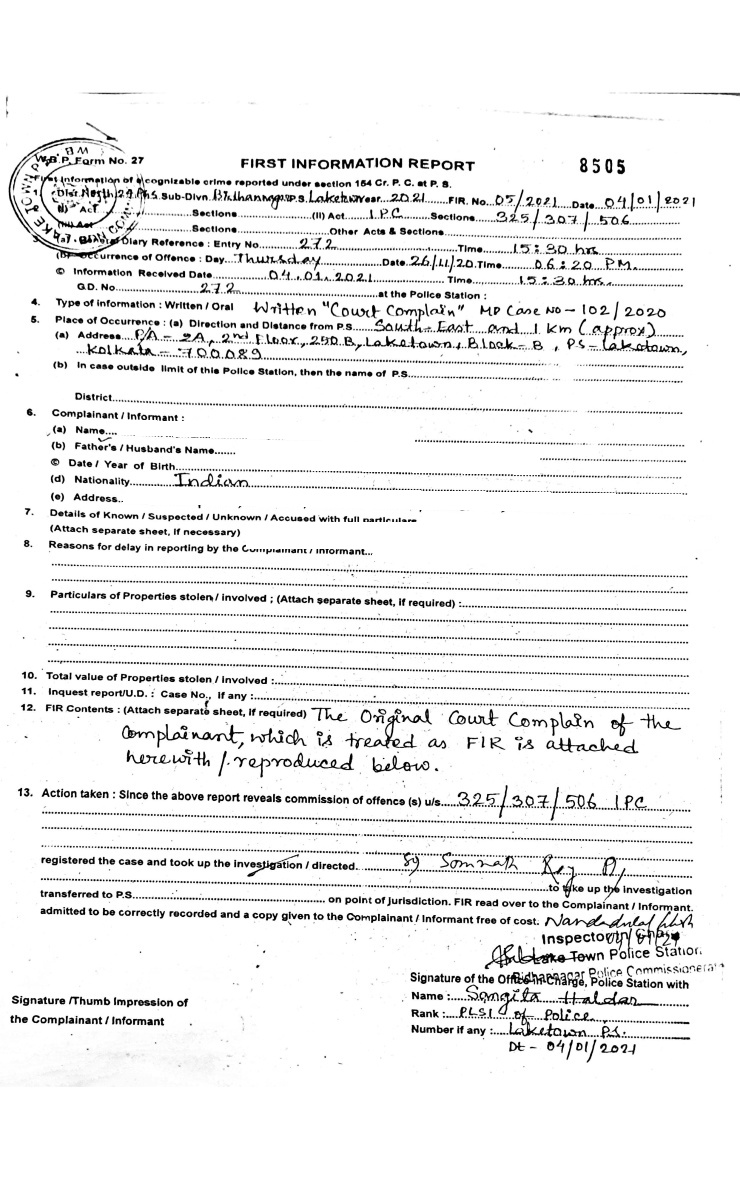 W.B.P. Form No. 27
FIRST INFORMATION REPORT
8505
First Information of cognizable crime reported under section 154 Cr. P. C. at P. S.
1. Dist. North 24 Pgs Sub-Divn. Bidhannagar P.S. Laketown Year 2021 FIR. No. 05/2021 Date 04/01/2021
Sections (II) Act I.P.C Sections 325/307/506
Sections Other Acts & Sections
Diary Reference : Entry No 272 Time 15:30 hrs
(b) Occurrence of Offence : Day Thursday Date 26/11/20 Time 06:20 PM.
© Information Received Date 04.01.2021 Time 15:30 hrs.
G.D. No 272 at the Police Station :
4. Type of information : Written / Oral Written "Court Complain" MP Case No - 102/2020
5. Place of Occurrence : (a) Direction and Distance from P.S. South-East and 1 Km (approx)
(a) Address P/A - 2A, 2nd Floor, 250 B, Laketown, Block-B, PS-Laketown,
Kolkata - 700089
(b) In case outside limit of this Police Station, then the name of P.S.
District
6. Complainant / Informant :
(a) Name
(b) Father's / Husband's Name
© Date / Year of Birth
(d) Nationality Indian
(e) Address..
7. Details of Known / Suspected / Unknown / Accused with full particulars
(Attach separate sheet, if necessary)
8. Reasons for delay in reporting by the Complainant / Informant...
9. Particulars of Properties stolen / involved ; (Attach separate sheet, if required) :
10. Total value of Properties stolen / involved :
11. Inquest report/U.D. : Case No., if any :
12. FIR Contents : (Attach separate sheet, if required) The Original Court Complain of the
Complainant, which is treated as FIR is attached
herewith / reproduced below.
13. Action taken : Since the above report reveals commission of offence (s) u/s 325/307/506 IPC
registered the case and took up the investigation / directed. SI Somnath Roy
to take up the investigation
transferred to P.S. on point of jurisdiction. FIR read over to the Complainant / Informant.
admitted to be correctly recorded and a copy given to the Complainant / Informant free of cost.
Lake Town Police Station
Bidhannagar Police Commissionerate
Signature of the Officer-in-Charge, Police Station with
Name : Sangita Haldar
Signature /Thumb Impression of
Rank : PLSI of Police
the Complainant / Informant
Number if any : Laketown P.S.
Dt - 04/01/2021